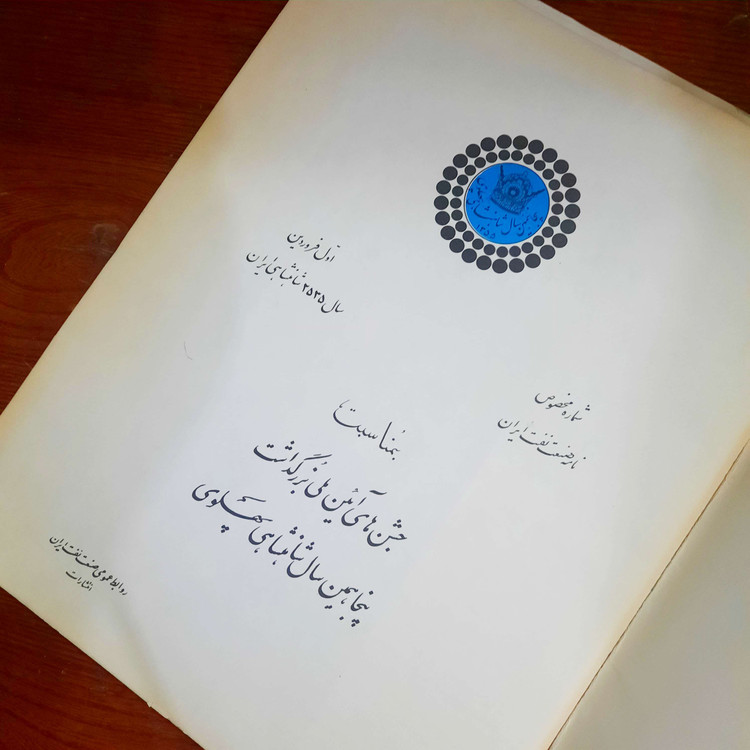 پنجاهمین سال شاهنشاهی پهلوی
۱۳۵۵
اول فروردین
سال ۲۵۳۵ شاهنشاهی ایران
شماره مخصوص
نامه صنعت نفت ایران
بمناسبت‌ها
جشن‌های آئین ملی بزرگداشت
پنجاهمین سال شاهنشاهی پهلوی
روابط عمومی صنعت نفت ایران
انتشارات